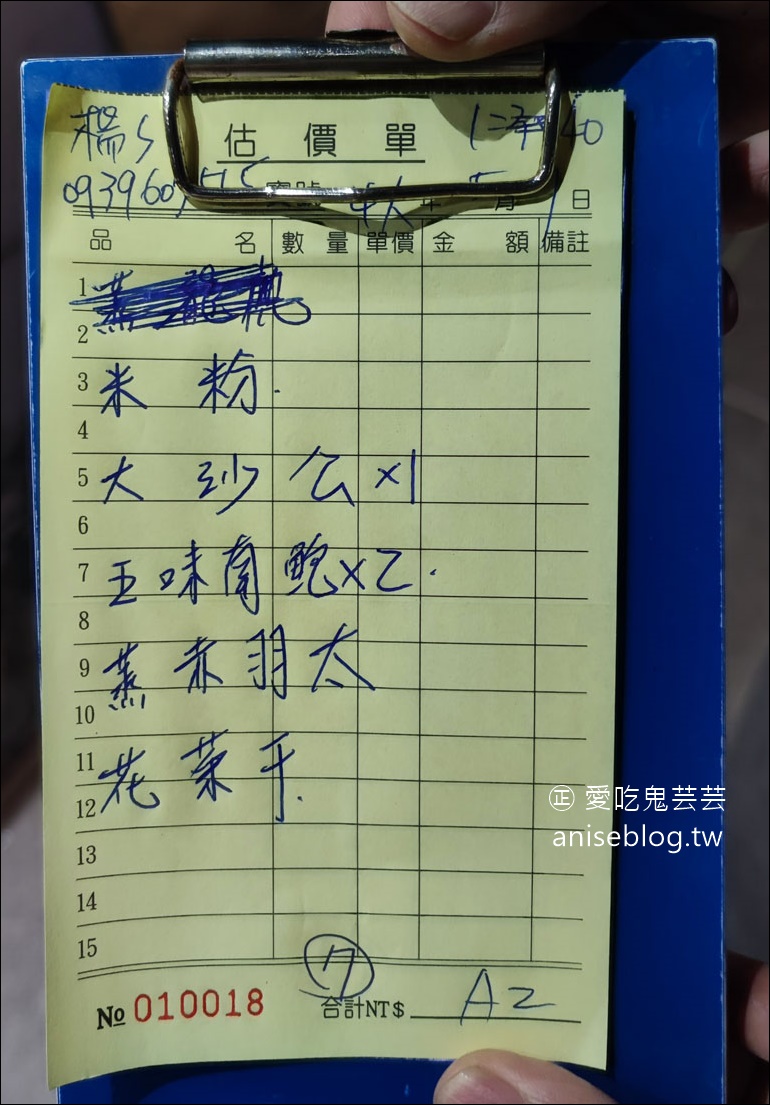 楊s 估價單
寶號 4大 年 5 月 1 日
品名 數量 單價 金額 備註
1
2
3 米粉.
4
5 大沙公x1
6
7 五味南鮑x2.
8
9 蒸赤羽太
10
11 花菜干.
12
13
14
15
㊣ 愛吃鬼芸芸
aniseblog.tw
№ 010018 合計NT$ A2